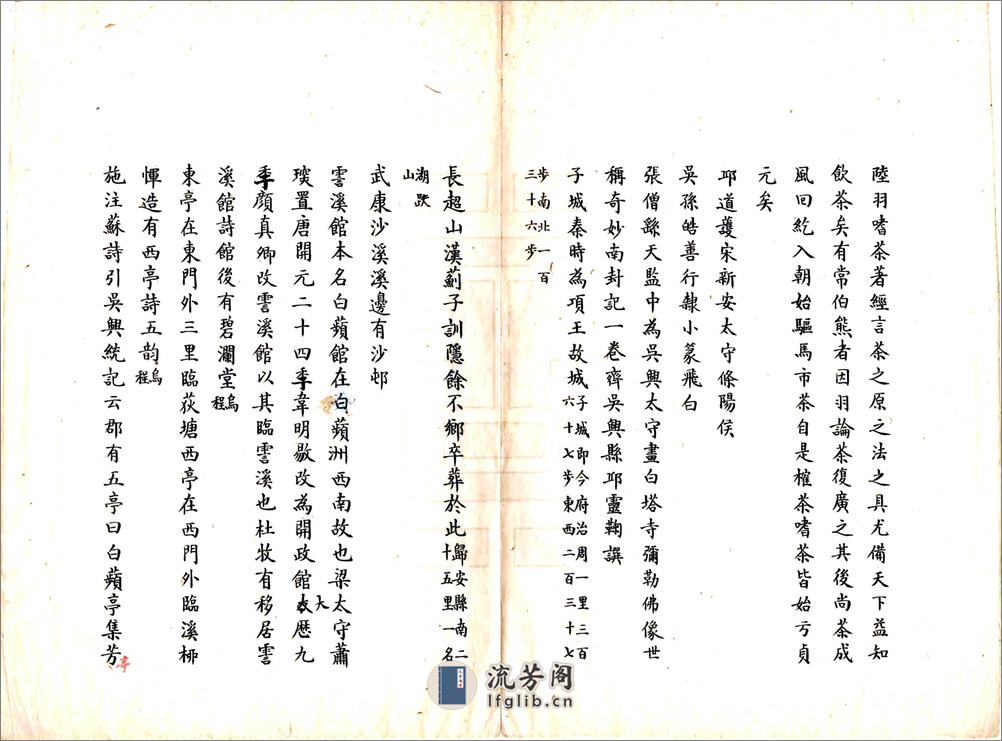 陸羽嗜茶著經言茶之原之法之具尤備天下益知
飲茶矣有常伯熊者因羽論茶復廣之其後尚茶成
風回紇入朝始驅馬市茶自是榷茶嗜茶皆始亏貞
元矣
邱道護宋新安太守條陽侯
吳孫皓善行隸小篆飛白
張僧繇天監中為吳興太守畫白塔寺彌勒佛像世
稱奇妙南封記一卷齊吳興縣邱靈鞠譔
子城秦時為項王故城子城即今府治周一里三百六十七步東西二百三十七
步南北一百三十六步
長超山漢薊子訓隱餘不鄉卒葬於此歸安縣南二十五里一名
湖趺山
武康沙溪溪邊有沙邨
霅溪館本名白蘋館在白蘋洲西南故也梁太守蕭
琛置唐開元二十四季韋明敭改為開政館大歷九
季顏真卿改霅溪館以其臨霅溪也杜牧有移居霅
溪館詩館後有碧瀾堂烏程
東亭在東門外三里臨荻塘西亭在西門外臨溪柳
惲造有西亭詩五韵烏程
施注蘇詩引吳興統記云郡有五亭曰白蘋亭集芳
亭
流芳阁
lfglib.cn